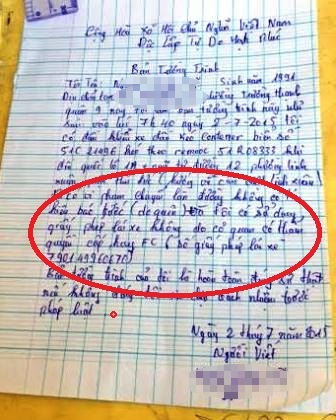 Cộng Hoà Xã Hội Chủ Nghĩa Việt Nam
Độc Lập Tự Do Hạnh Phúc
Bản Tường Trình
Tôi Tên: Ng Sinh năm 1991
tường thanh
quận 9 nay tôi làm bản tường trình này như
sau vào lúc 7h 40 ngày 2-7-2015 tôi
có điều khiển xe đầu kéo container biển số
51C 21496 kéo theo remooc 51R 08333 khi
đến quốc lộ 1A
có vi phạm chuyển làn đường không có
báo trước (do quên) tôi có sử dụng
giấy phép lái xe không do cơ quan có thẩm
quyền cấp hạng FC (số giấy phép lái xe
790149960870)
Bản tường trình của tôi là hoàn toàn đúng sự thật
nếu không đúng tôi chịu trách nhiệm trước
pháp luật
Ngày 2 tháng 7 năm 2015
Người Viết